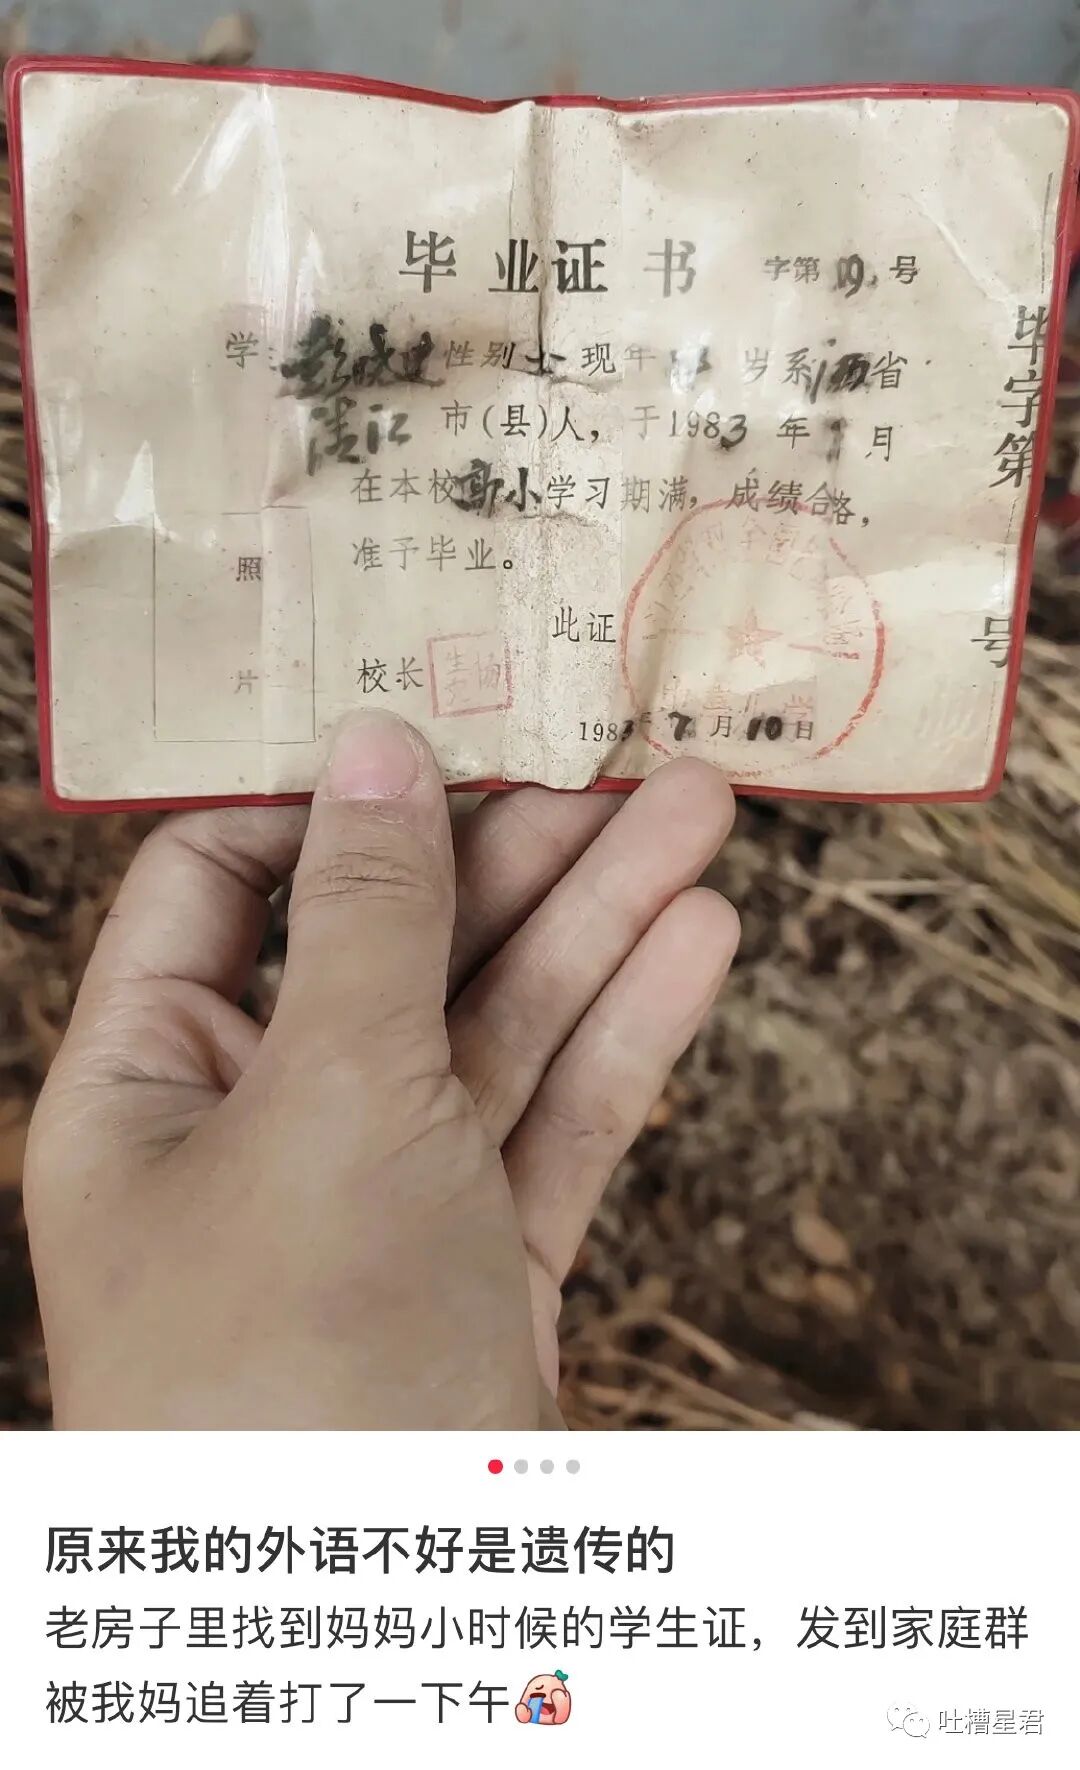 毕业证书 字第 19 号
学 性别 女 现年 岁系江西省
清江 市(县)人，于1983年7月
在本校高小学习期满，成绩合格，
准予毕业。
此证
校长
1983年7月10日
照
片
毕字第
号
小学
原来我的外语不好是遗传的
老房子里找到妈妈小时候的学生证，发到家庭群
被我妈追着打了一下午
吐槽星君